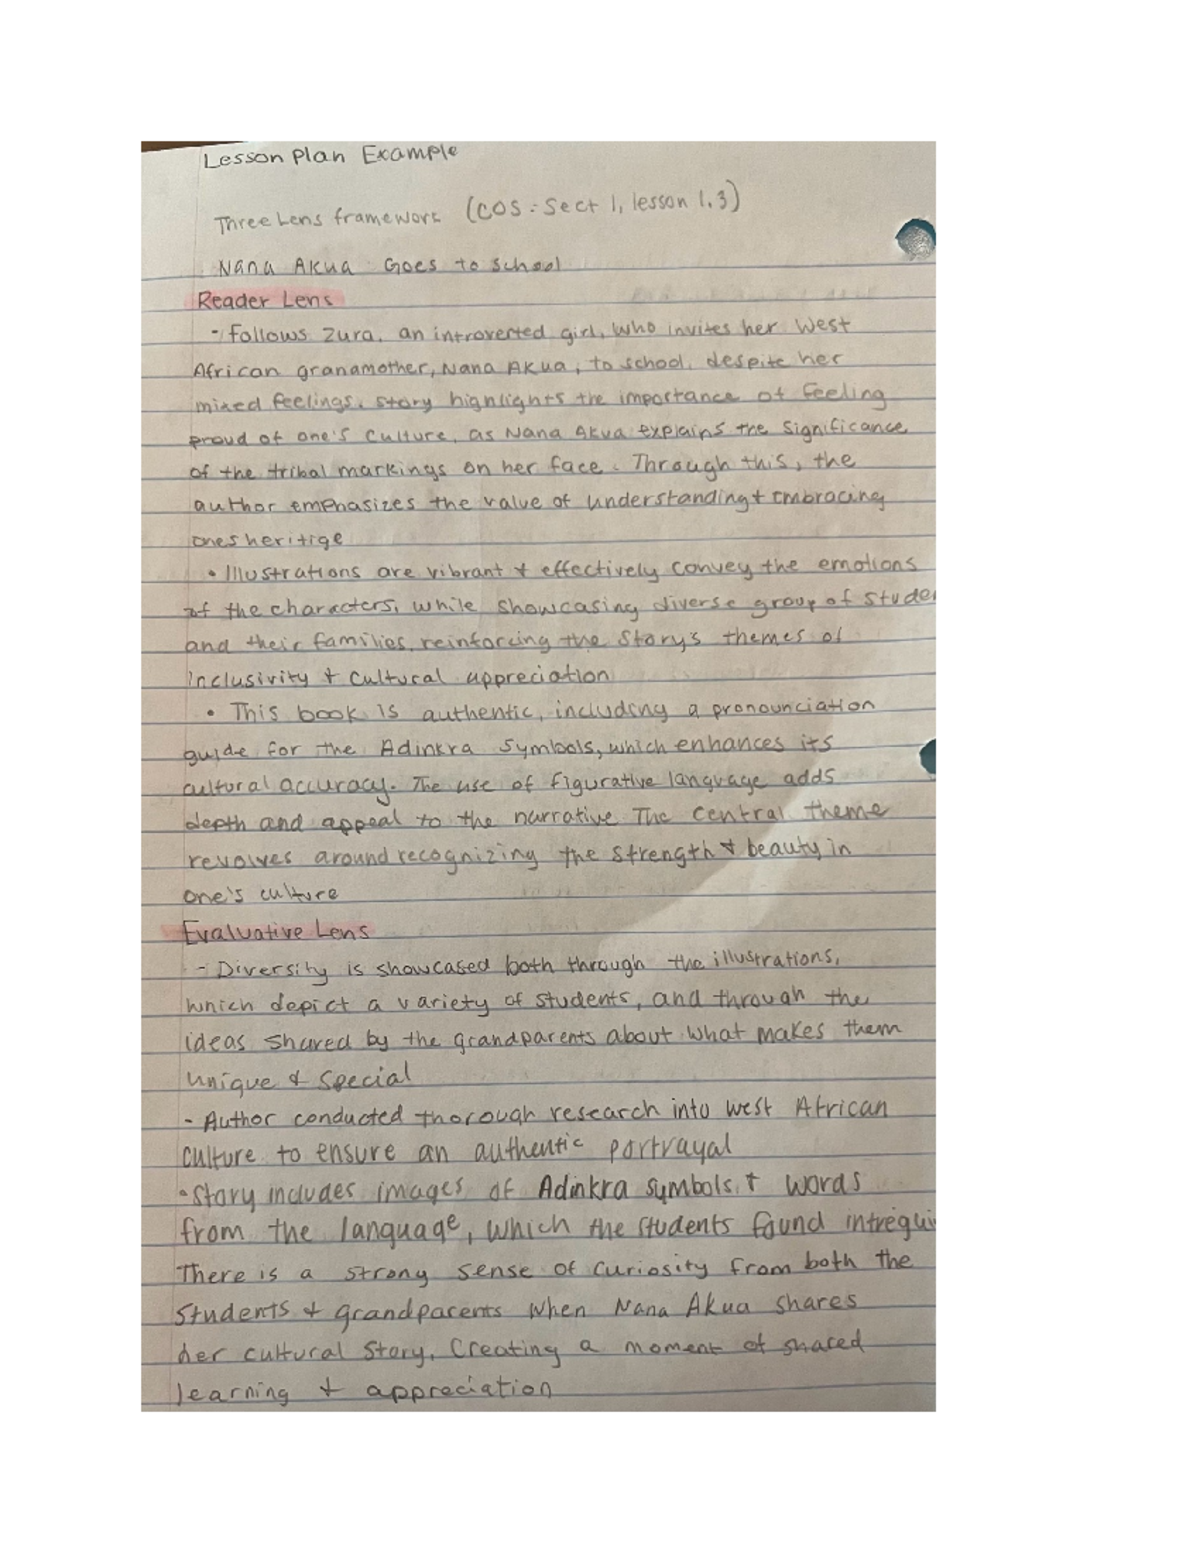 Lesson Plan Example
Three Lens framework (COS: Sect 1, lesson 1.3)
Nana Akua Goes to School
Reader Lens
- follows Zura, an introverted girl, who invites her West
African granamother, Nana Akua, to school, despite her
mixed feelings. Story highlights the importance of feeling
proud of one's culture, as Nana Akua explains the significance
of the tribal markings on her face. Through this, the
author emphasizes the value of understanding + embracing
ones heritige
• Illustrations are vibrant & effectively convey the emotions
of the characters, while showcasing diverse group of studen
and their families, reinforcing the story's themes of
inclusivity & cultural appreciation
• This book is authentic, including a pronounciation
guide for the Adinkra Symbols, which enhances its
cultural accuracy. The use of figurative language adds
depth and appeal to the narrative The central theme
revolves around recognizing the strength & beauty in
one's culture
Evaluative Lens
- Diversity is showcased both through the illustrations,
which depict a variety of students, and through the
ideas shared by the grandparents about what makes them
unique & special
- Author conducted thorough research into West African
culture to ensure an authentic portrayal
• Story includes images of Adinkra symbols & words
from the language, which the students found intregui
There is a strong sense of curiosity from both the
students & grandparents when Nana Akua shares
her cultural story, creating a moment of shared
learning & appreciation